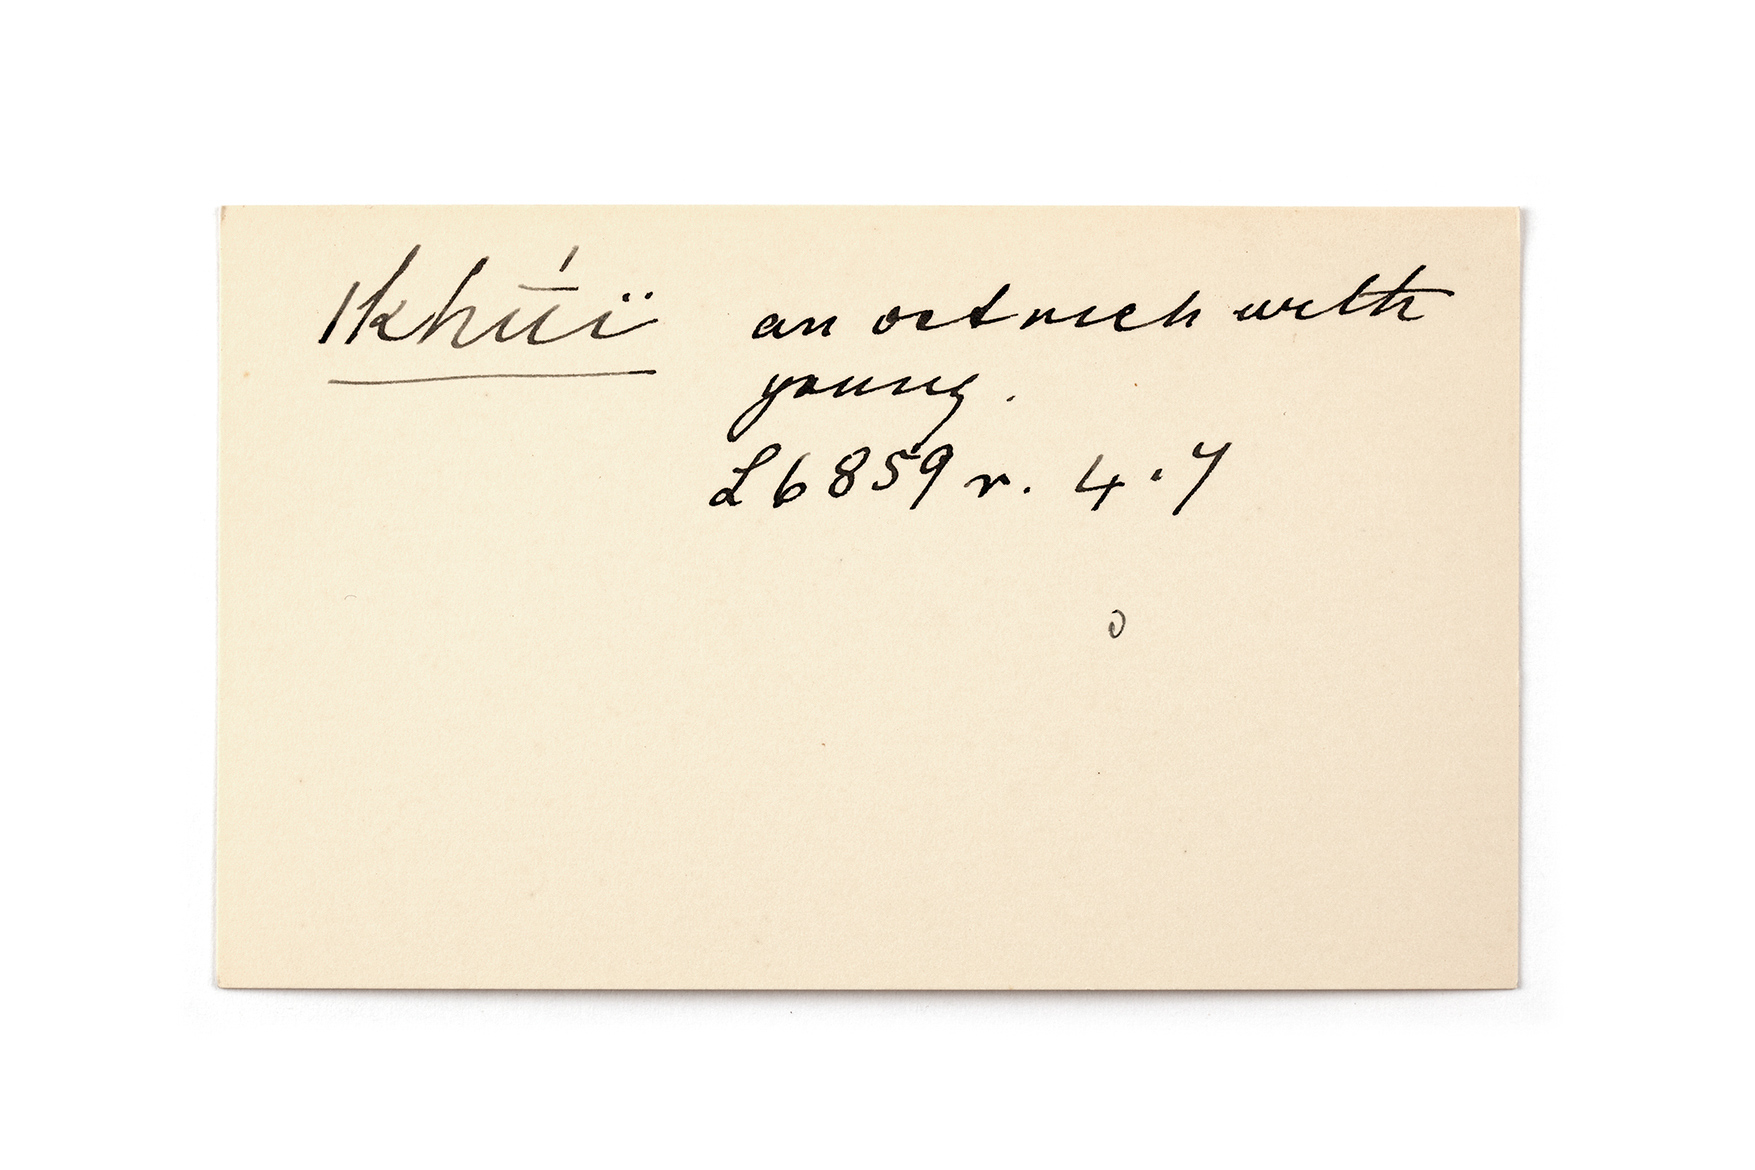 ǀkhū́ï an ostrich with
young.
L6859 r. 4.7